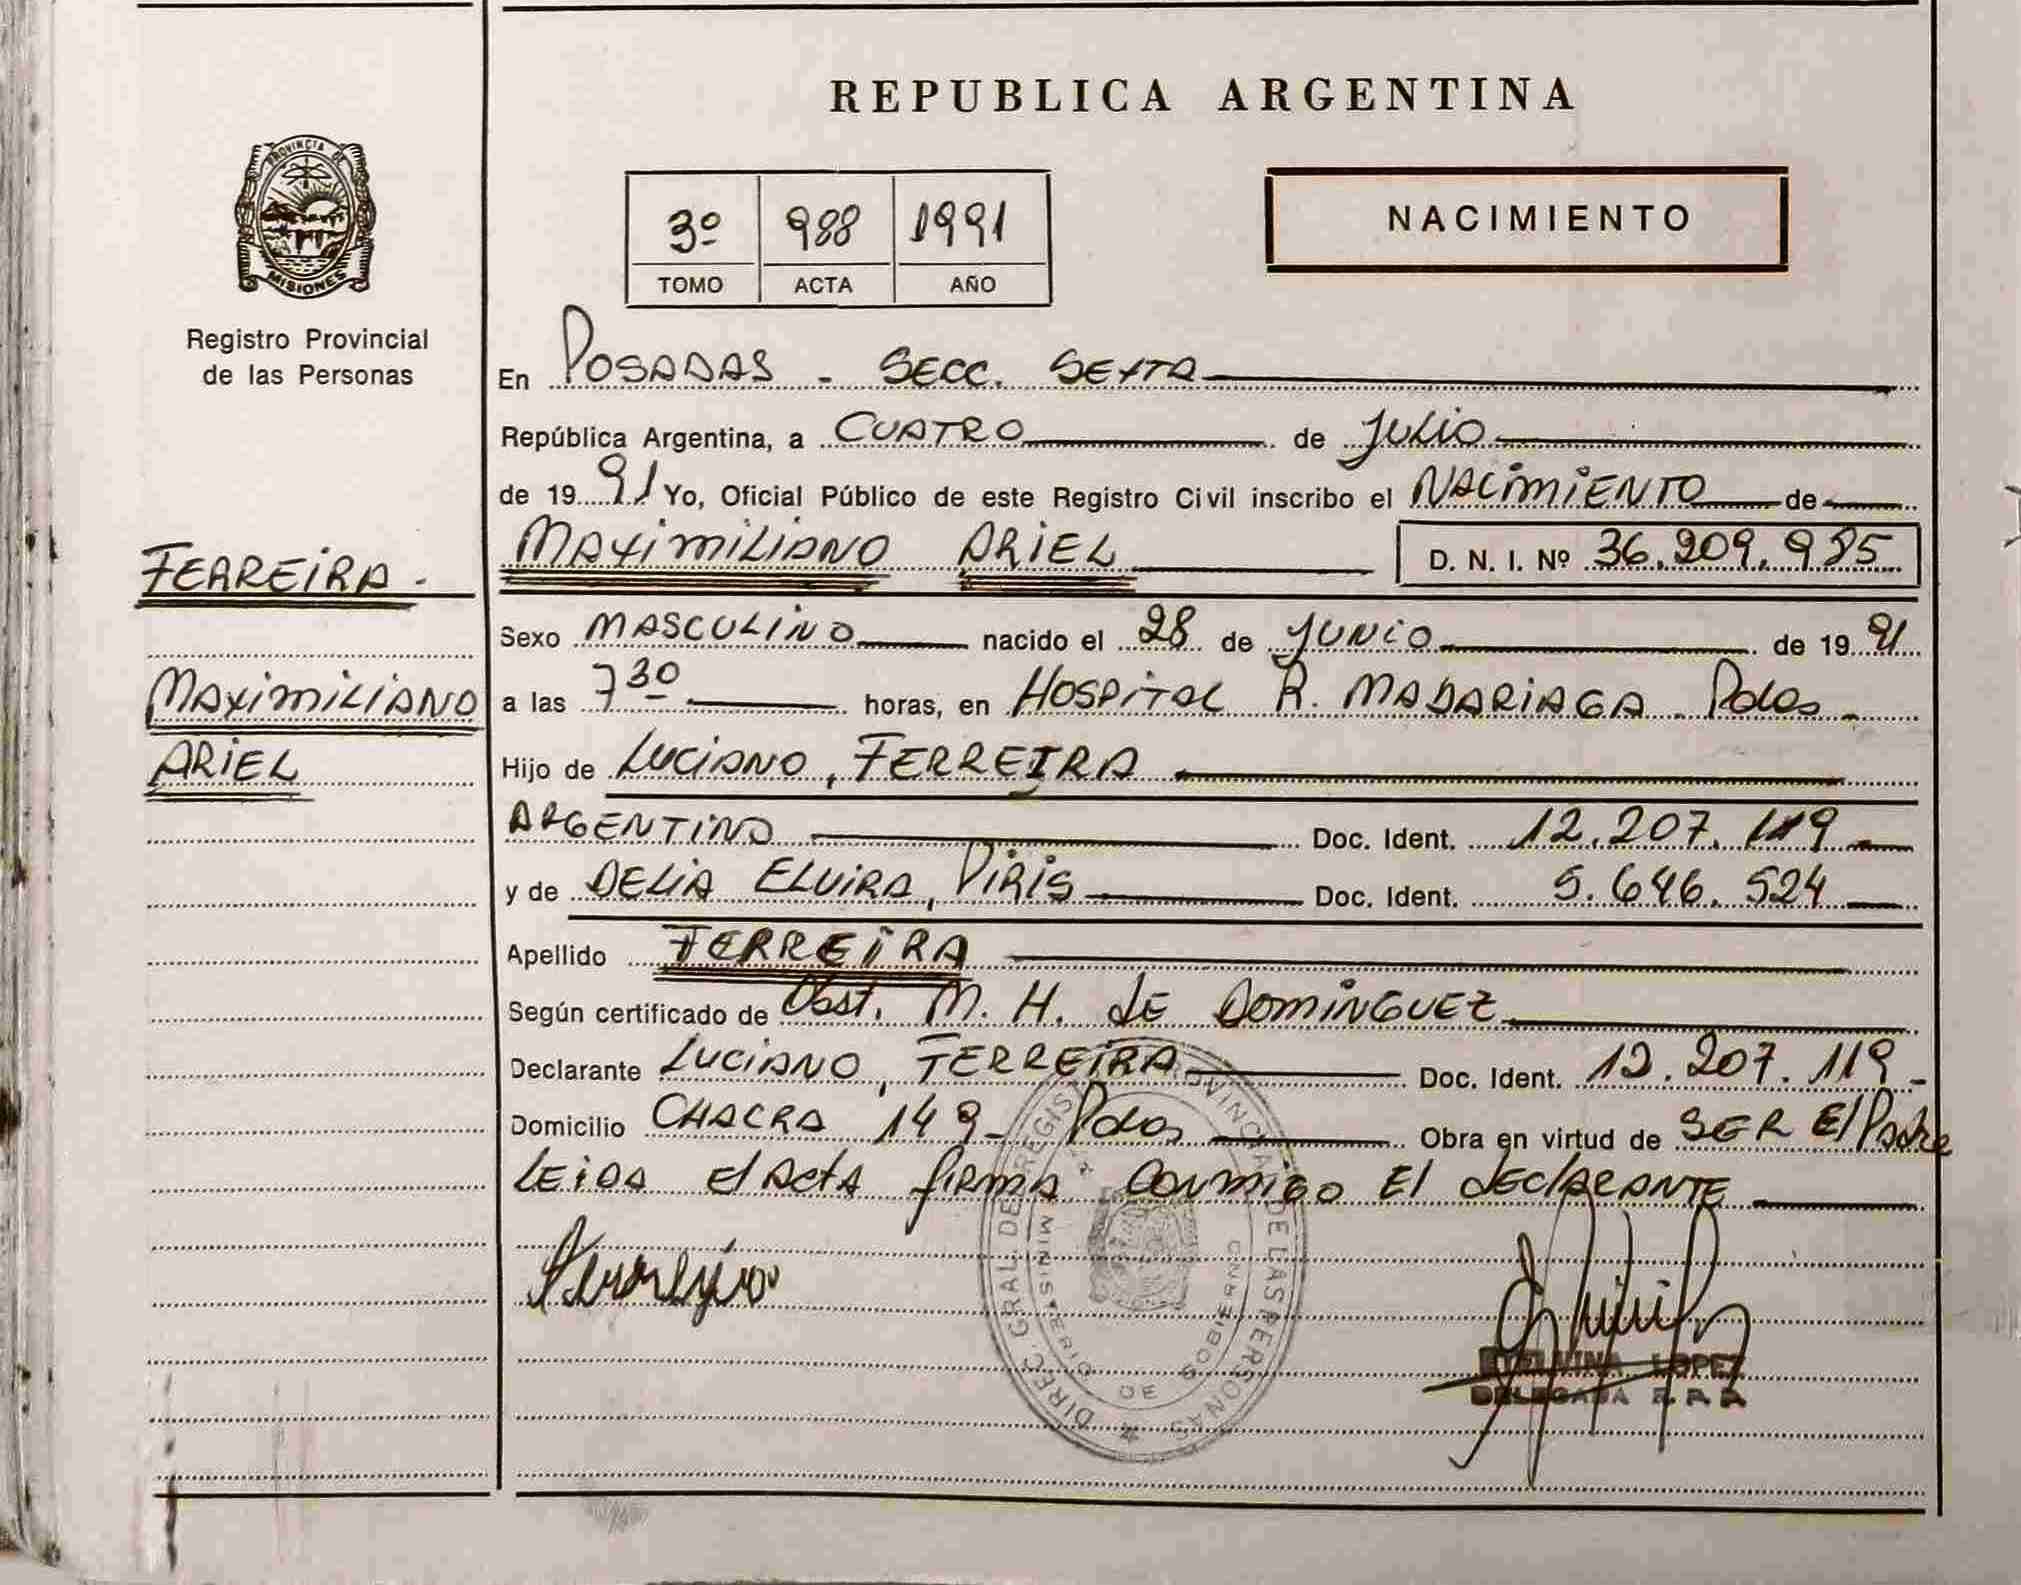 REPUBLICA ARGENTINA
PROVINCIA DE MISIONES
Registro Provincial
de las Personas
3º 988 1991
TOMO ACTA AÑO
NACIMIENTO
En POSADAS - SECC. SEXTA
República Argentina, a CUATRO de JULIO
de 1991 Yo, Oficial Público de este Registro Civil inscribo el NACIMIENTO de
MAXIMILIANO ARIEL D. N. I. Nº 36.209.985
FERREIRA -
MAXIMILIANO
ARIEL
Sexo MASCULINO nacido el 28 de JUNIO de 1991
a las 7 30 horas, en HOSPITAL R. MADARIAGA - Pdas -
Hijo de LUCIANO, FERREIRA
ARGENTINO Doc. Ident. 12.207.119
y de DELIA ELVIRA, PIRIS Doc. Ident. 5.646.524
Apellido FERREIRA
Según certificado de Obst. M. H. de DOMINGUEZ
Declarante LUCIANO, FERREIRA Doc. Ident. 12.207.119 -
Domicilio CHACRA 149 - Pdas Obra en virtud de SER El Padre
LEIDA el Acta firma conmigo El declarante
DIREC. GRAL. DE REGISTRO PROVINCIAL DE LAS PERSONAS
MINISTERIO DE GOBIERNO
ETELVINA LOPEZ
DELEGADA R.P.P.